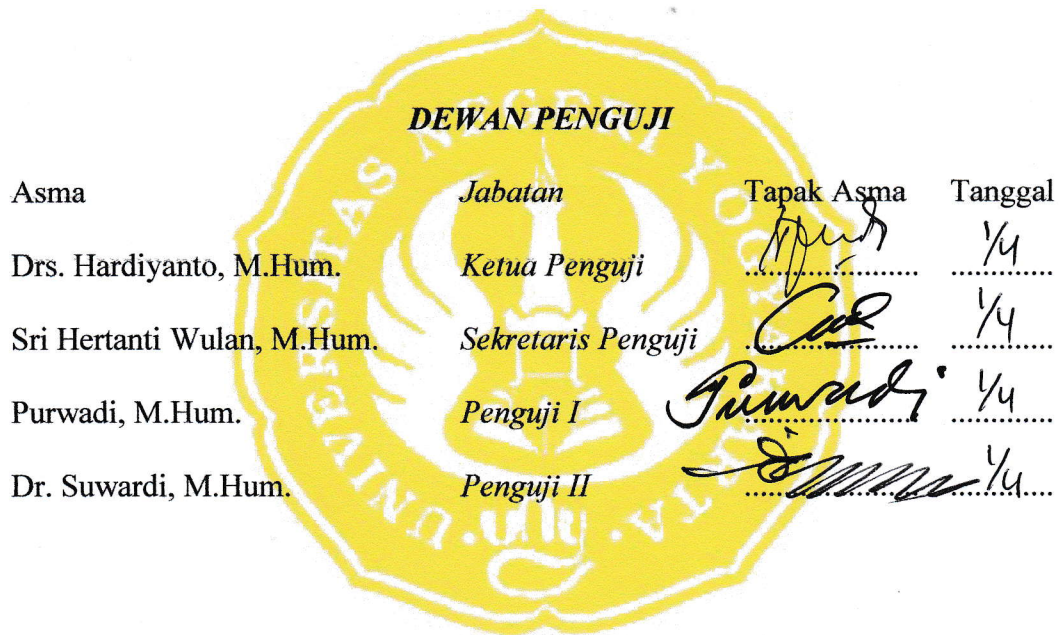 DEWAN PENGUJI
Asma Jabatan Tapak Asma Tanggal
Drs. Hardiyanto, M.Hum. Ketua Penguji .................... 1/4
Sri Hertanti Wulan, M.Hum. Sekretaris Penguji .................... 1/4
Purwadi, M.Hum. Penguji I Purwadi 1/4
Dr. Suwardi, M.Hum. Penguji II .................... 1/4
UNIVERSITAS NEGERI YOGYAKARTA
uny